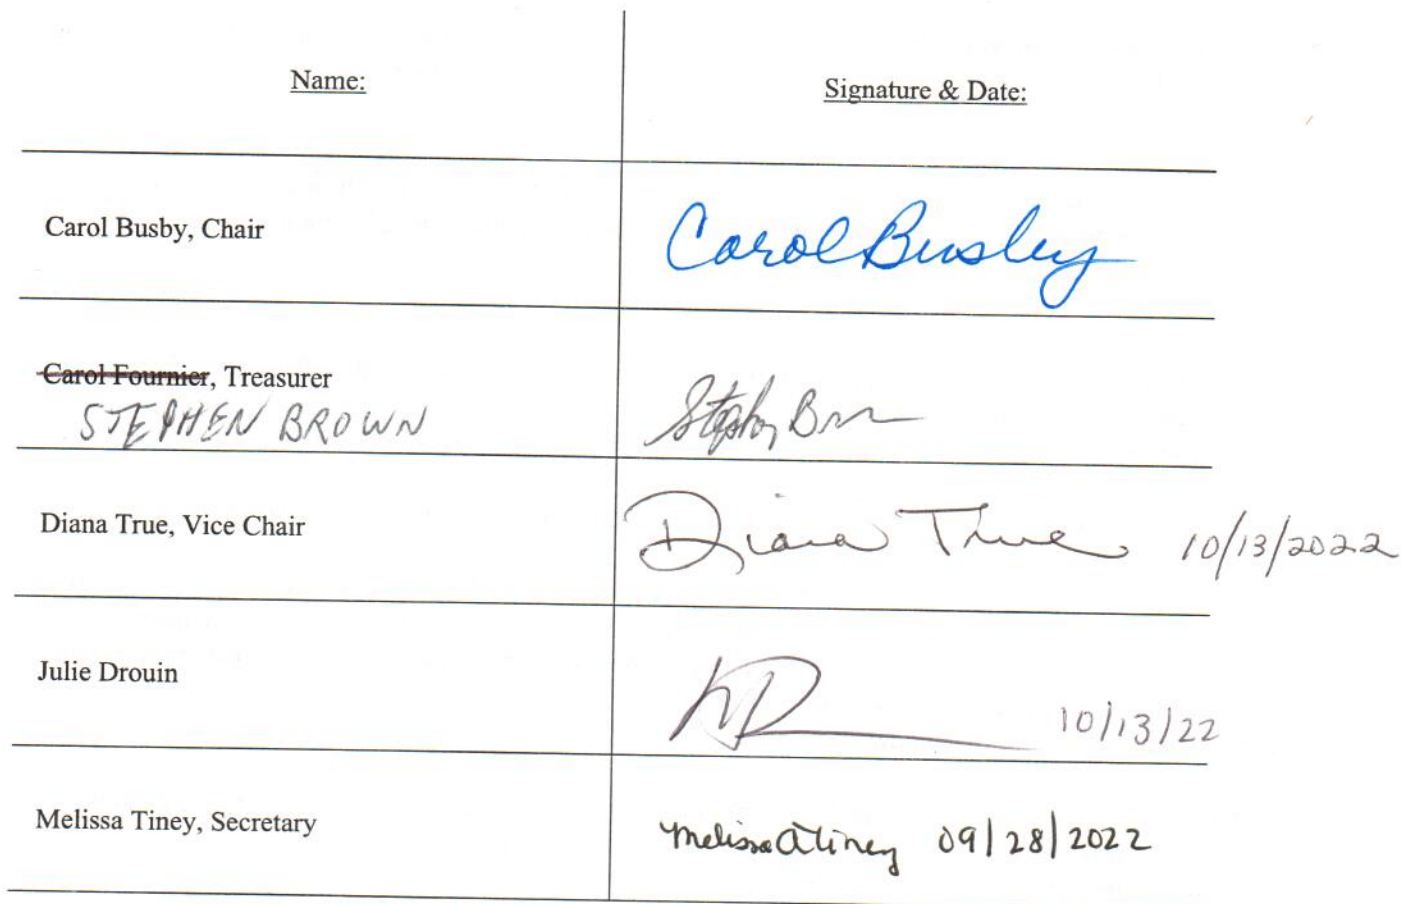 Name:
Signature & Date:
Carol Busby, Chair
Carol Busby
Carol Fournier, Treasurer
STEPHEN BROWN
Stephen Brown
Diana True, Vice Chair
Diana True 10/13/2022
Julie Drouin
10/13/22
Melissa Tiney, Secretary
Melissa A Tiney 09/28/2022